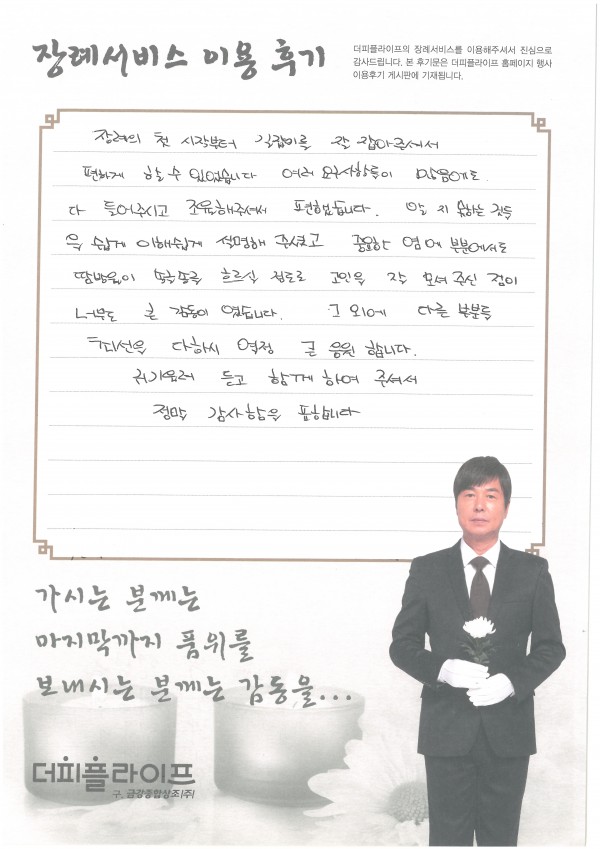 장례서비스 이용 후기
더피플라이프의 장례서비스를 이용해주셔서 진심으로
감사드립니다. 본 후기문은 더피플라이프 홈페이지 행사
이용후기 게시판에 기재됩니다.
장례의 첫 시작부터 길잡이를 잘 잡아주셔서
편하게 할 수 있었습니다 여러 요구사항들이 많음에도
다 들어주시고 조율해주셔서 편했습니다. 알 지 못하는 것들
을 쉽게 이해쉽게 설명해 주셨고 중요한 염에 부분에서도
땀방울이 뚝뚝 흐르실 정도로 고인을 잘 모셔 주신 점이
너무도 큰 감동이 였습니다. 그 외에 다른 부분들
최선을 다하시 열정 글 응원 합니다.
귀기울려 듣고 함께 하여 주셔서
정말 감사함을 표합니다
가시는 분께는
마지막까지 품위를
보내시는 분께는 감동을...
더피플라이프
구. 금강종합상조(주)